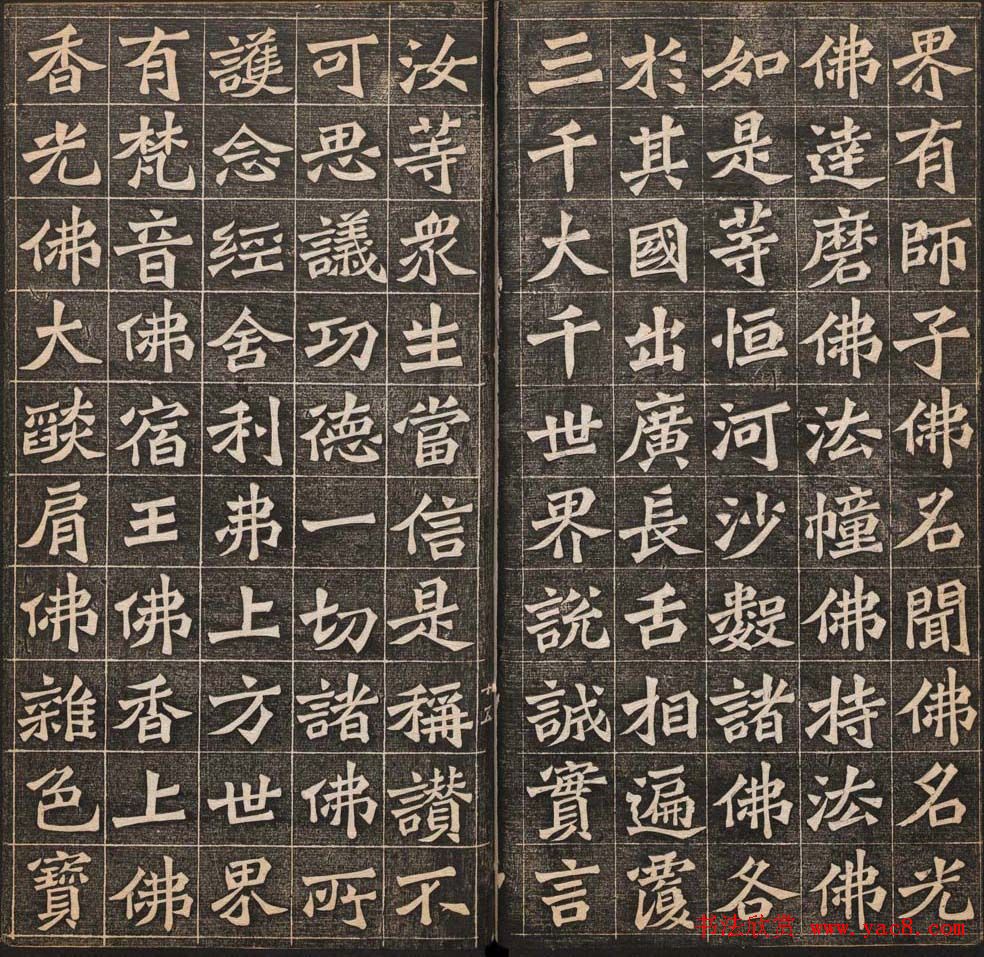 界有師子佛名聞佛名光
佛達磨佛法幢佛持法佛
如是等恒河沙數諸佛各
於其國出廣長舌相遍覆
三千大千世界說誠實言
汝等眾生當信是稱讚不
可思議功德一切諸佛所
護念經舍利弗上方世界
有梵音佛宿王佛香上佛
香光佛大燄肩佛雜色寶
十五
书法欣赏 www.yac8.com